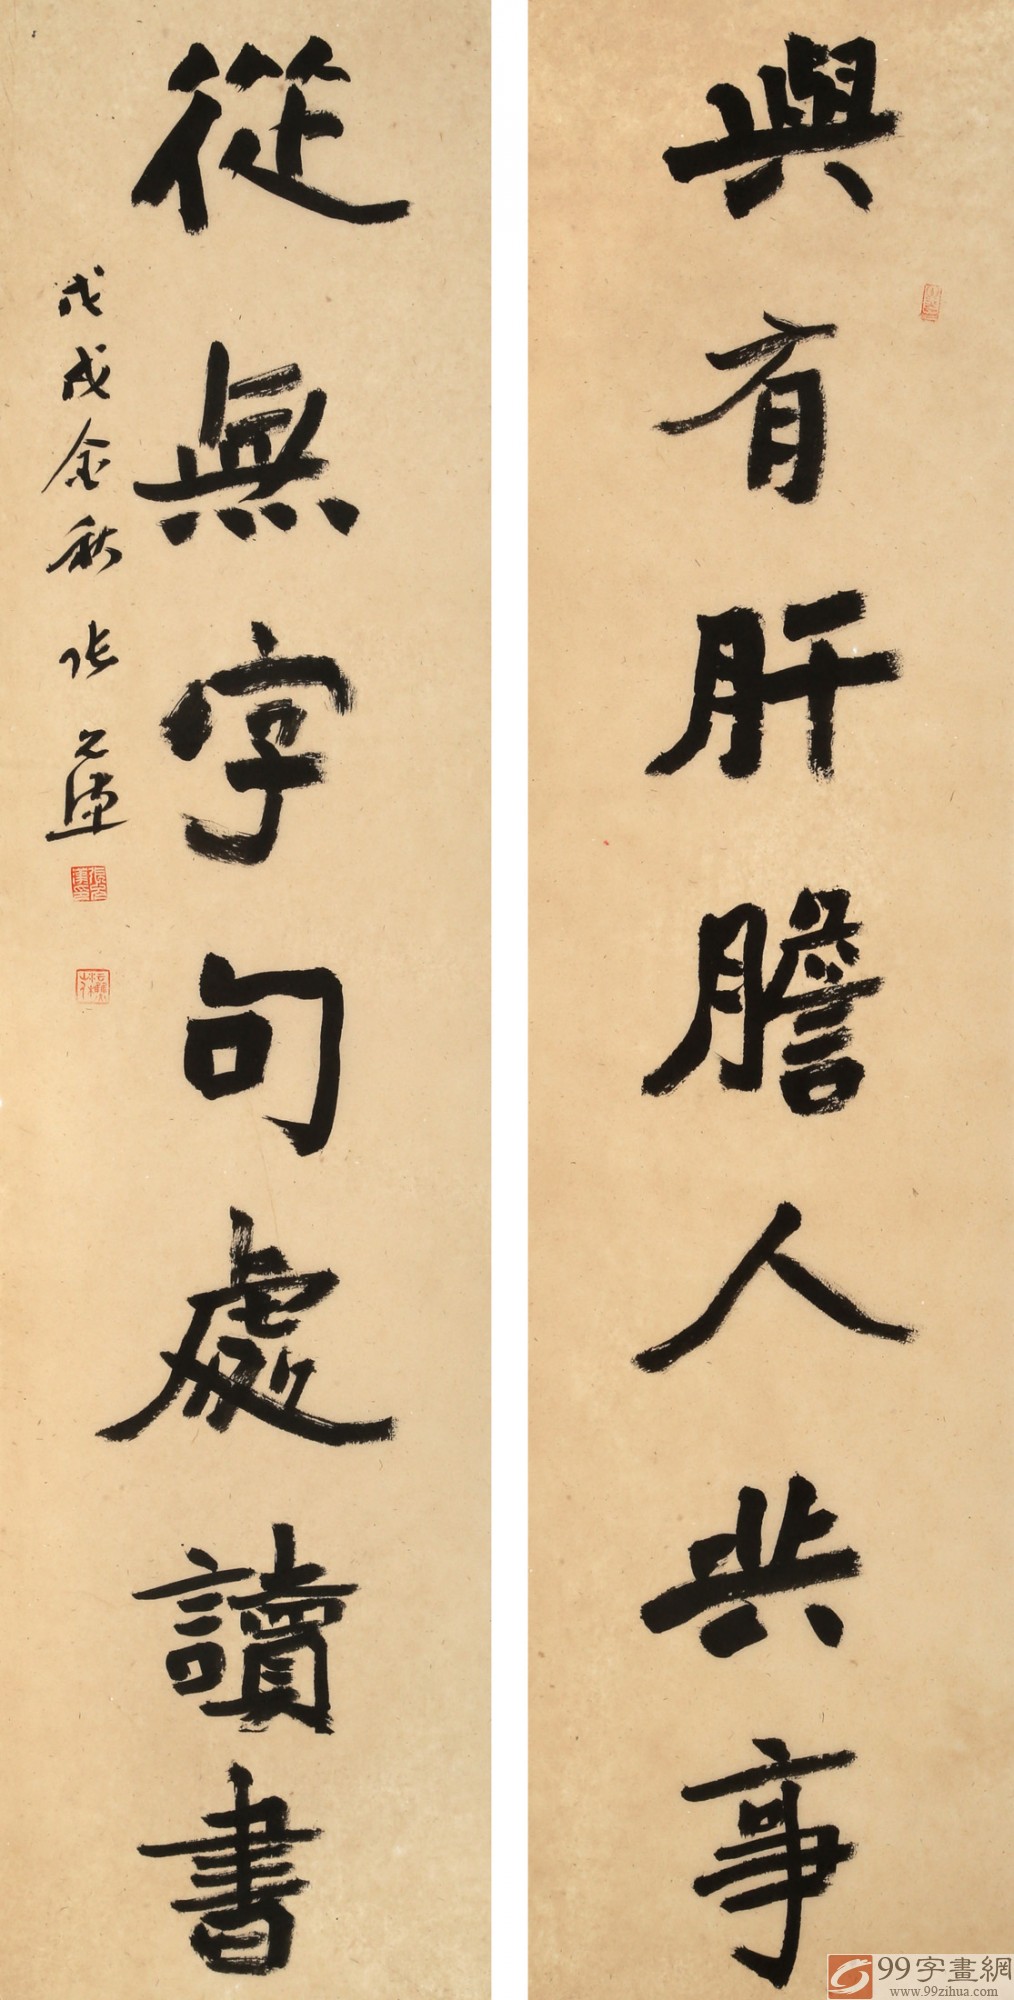 與有肝膽人共事
從無字句處讀書
戊戌金秋 张
99字畫網
www.99zihua.com